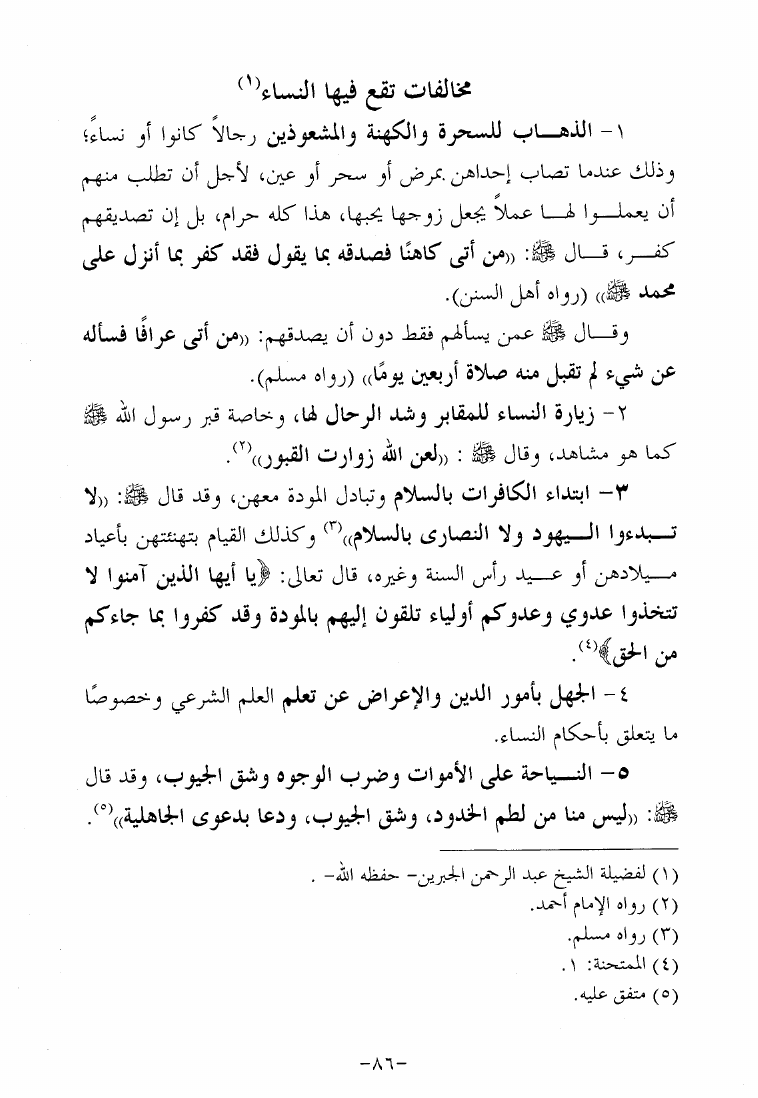 مخالفات تقع فيها النساء(١)
١- الذهاب للسحرة والكهنة والمشعوذين رجالاً كانوا أو نساءً؛
وذلك عندما تصاب إحداهن بمرض أو سحر أو عين، لأجل أن تطلب منهم
أن يعملوا لها عملاً يجعل زوجها يحبها، هذا كله حرام، بل إن تصديقهم
كفر، قال ﷺ: «من أتى كاهنًا فصدقه بما يقول فقد كفر بما أنزل على
محمد ﷺ» (رواه أهل السنن).
وقال ﷺ عمن يسألهم فقط دون أن يصدقهم: «من أتى عرافًا فسأله
عن شيء لم تقبل منه صلاة أربعين يومًا» (رواه مسلم).
٢- زيارة النساء للمقابر وشد الرحال لها، وخاصة قبر رسول الله ﷺ
كما هو مشاهد، وقال ﷺ : «لعن الله زوارت القبور»(٢).
٣- ابتداء الكافرات بالسلام وتبادل المودة معهن، وقد قال ﷺ: «لا
تبدءوا اليهود ولا النصارى بالسلام»(٣) وكذلك القيام بتهنئتهن بأعياد
ميلادهن أو عيد رأس السنة وغيره، قال تعالى: ﴿يا أيها الذين آمنوا لا
تتخذوا عدوي وعدوكم أولياء تلقون إليهم بالمودة وقد كفروا بما جاءكم
من الحق﴾(٤).
٤- الجهل بأمور الدين والإعراض عن تعلم العلم الشرعي وخصوصًا
ما يتعلق بأحكام النساء.
٥- النياحة على الأموات وضرب الوجوه وشق الجيوب، وقد قال
ﷺ: «ليس منا من لطم الخدود، وشق الجيوب، ودعا بدعوى الجاهلية»(٥).
(١) لفضيلة الشيخ عبد الرحمن الجبرين- حفظه الله- .
(٢) رواه الإمام أحمد.
(٣) رواه مسلم.
(٤) الممتحنة: ١ .
(٥) متفق عليه.
-٨٦-